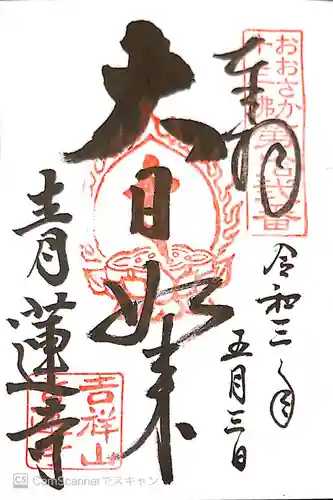 奉拝
おおさか
十三佛
第拾弐番
令和三年
五月三日
大日如来
吉祥山
青蓮寺
CS CamScannerでスキャン